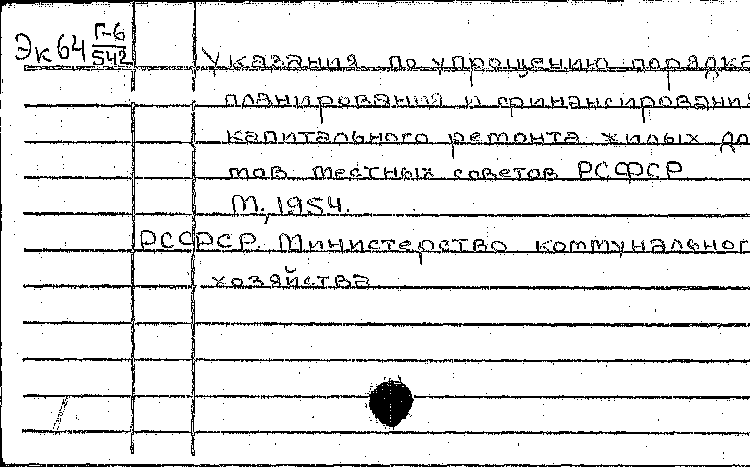 Эк64 Г-6/542
Указания по упрощению порядка
планирования и финансирования
капитального ремонта жилых до
мов местных советов РСФСР
М., 1954.
РСФСР. Министерство коммунальног
хозяйства